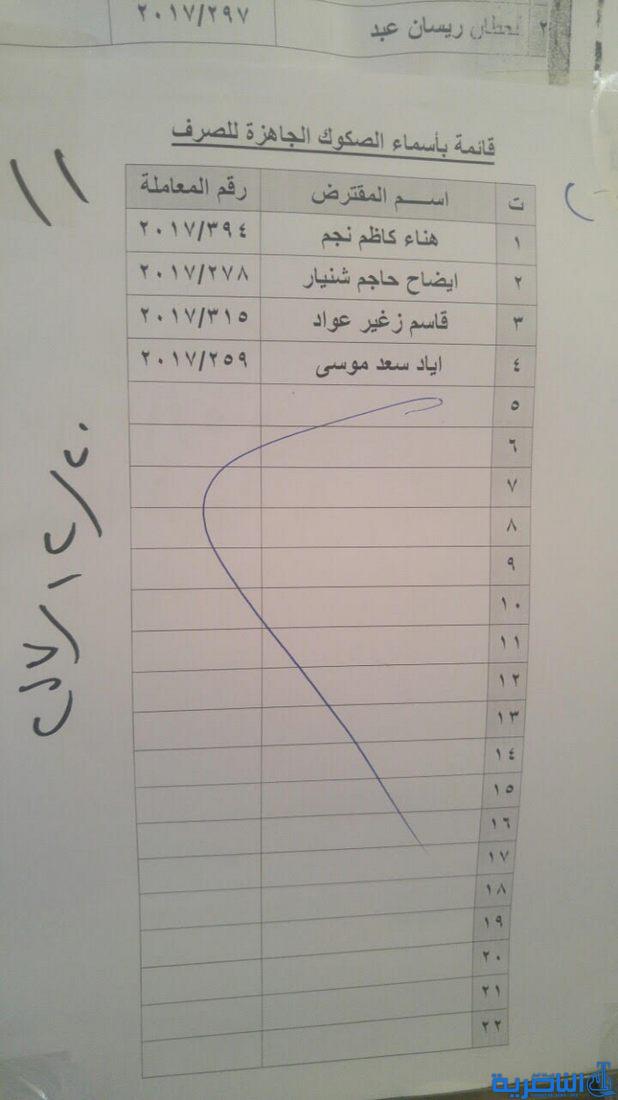 ٢ لعطان ريسان عبد ٢٠١٧/٢٩٧
قائمة بأسماء الصكوك الجاهزة للصرف
ت اســـم المقترض رقم المعاملة
١ هناء كاظم نجم ٢٠١٧/٣٩٤
٢ ايضاح حاجم شنيار ٢٠١٧/٢٧٨
٣ قاسم زغير عواد ٢٠١٧/٣١٥
٤ اياد سعد موسى ٢٠١٧/٢٥٩
٥
٦
٧
٨
٩
١٠
١١
١٢
١٣
١٤
١٥
١٦
١٧
١٨
١٩
٢٠
٢١
٢٢
١١
الناصرية